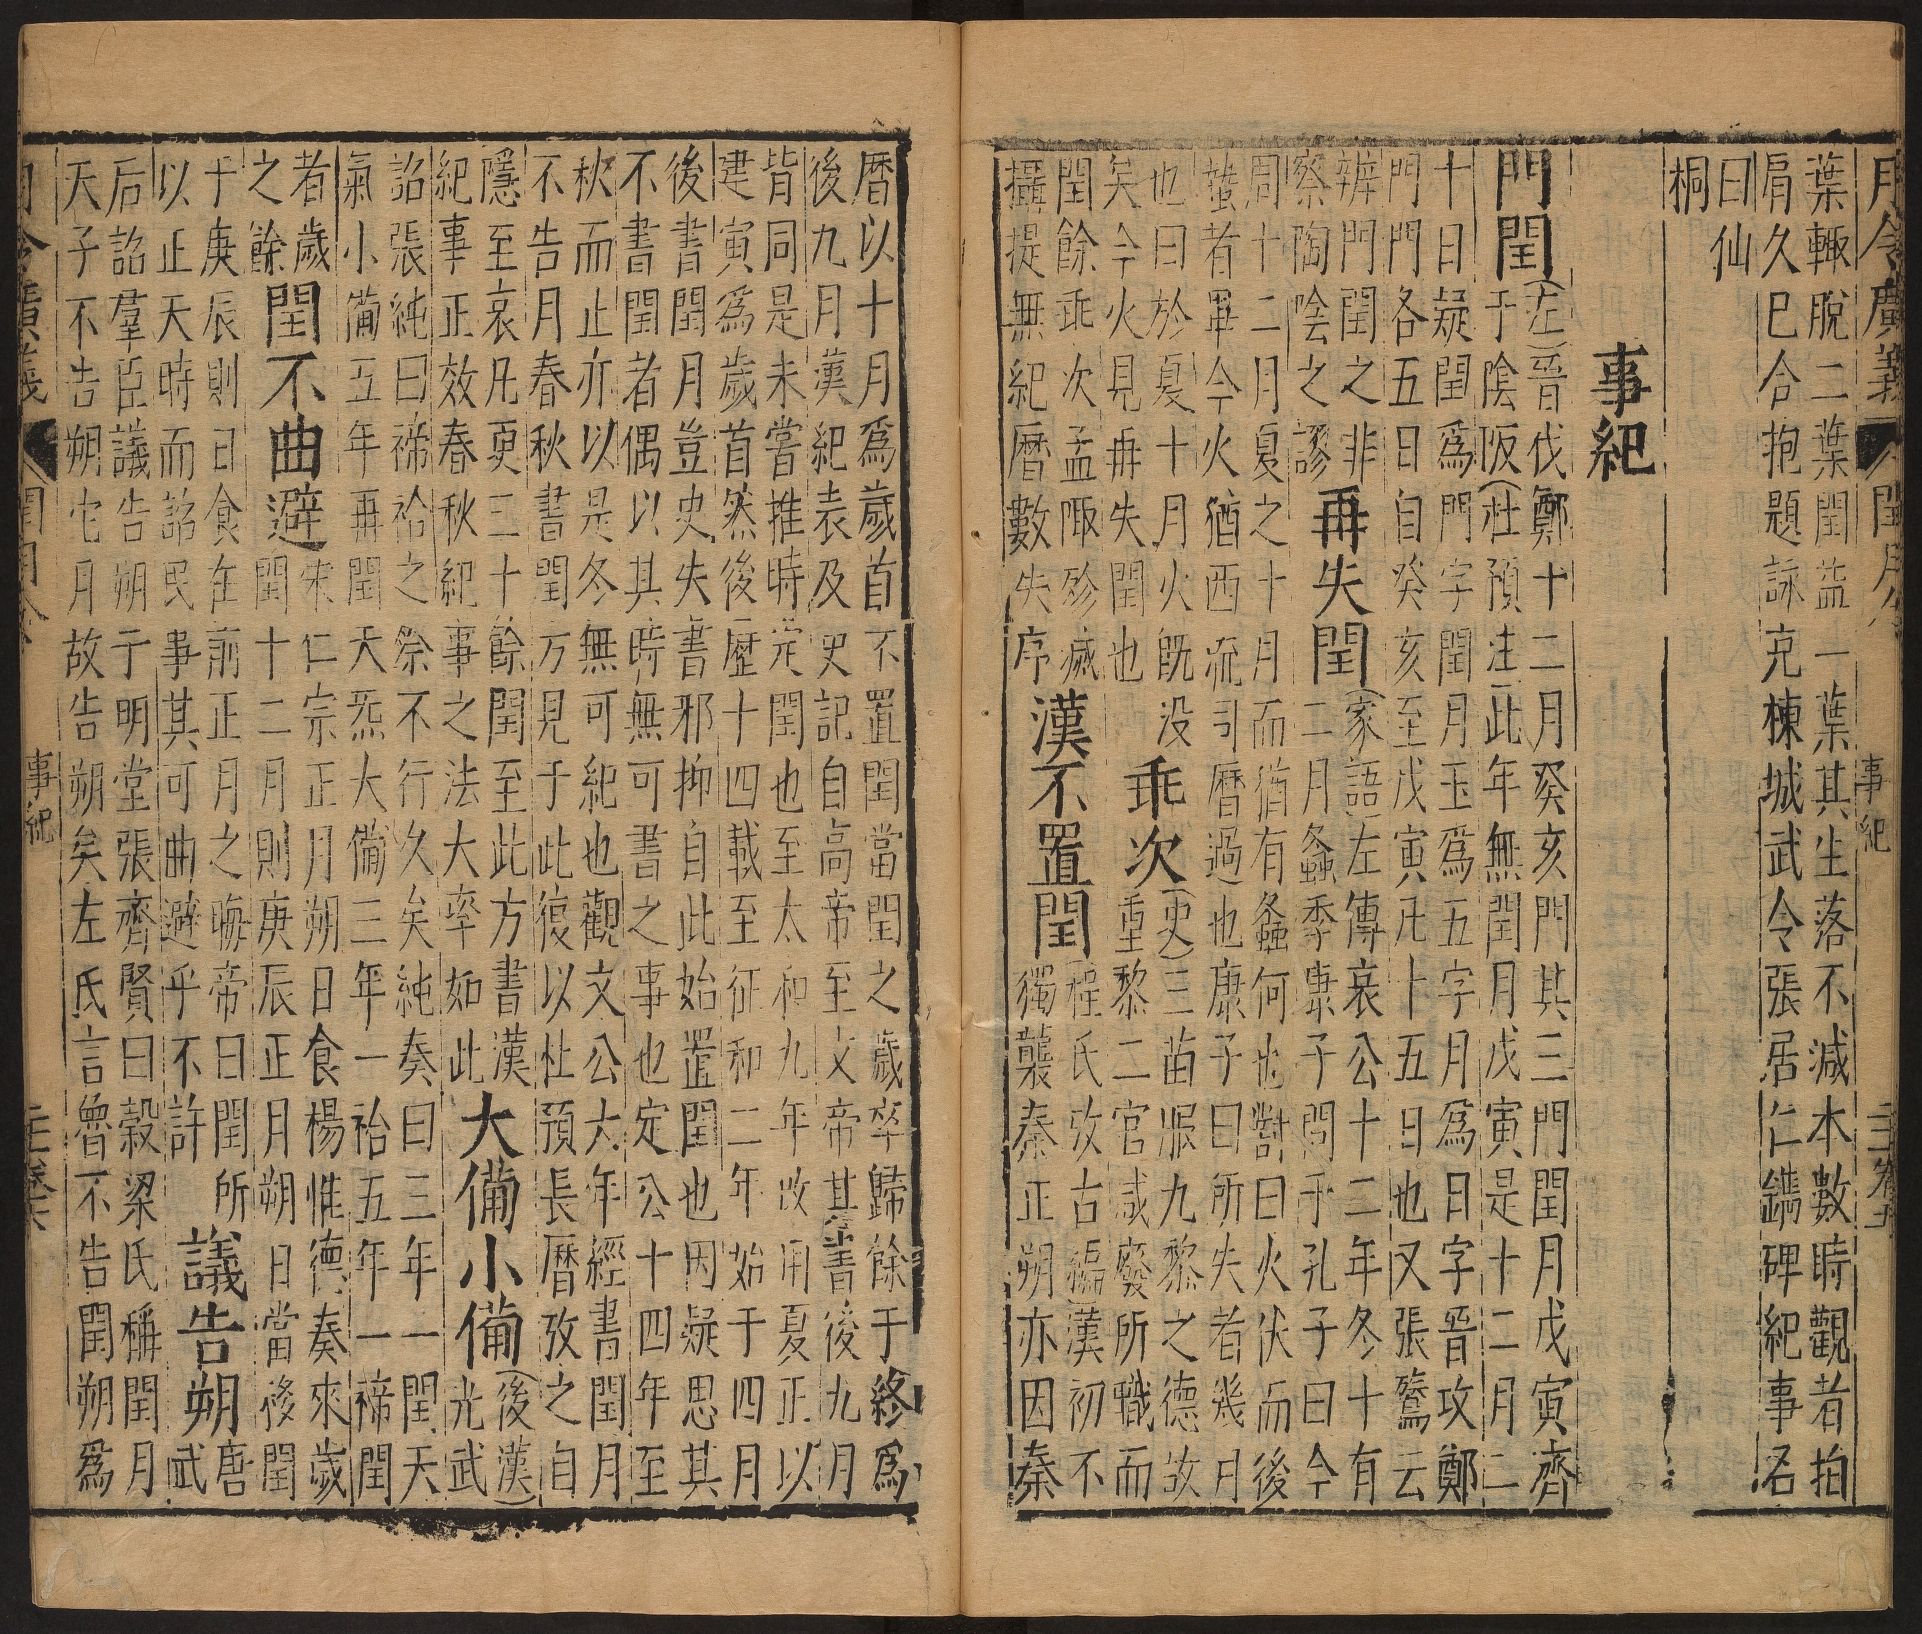 月令廣義 閏月令 事紀
葉輙脫二葉閏益一葉其生落不減本數時觀者拍
肩久巳合抱題詠克棟城武令張居仁鐫碑紀事名
曰仙
桐
事紀
門閏(左)晉伐鄭十二月癸亥門其三門閏月戊寅齊
于陰阪(杜預注)此年無閏月戊寅是十二月二
十日疑閏爲門字閏月玉爲五字月爲日字晉攻鄭
門門各五日自癸亥至戊寅凡十五日也又張鶩云
辨門閏之非
察陶陰之謬
再失閏(家語)左傳哀公十二年冬十有
二月螽季康子問于孔子曰今
周十二月夏之十月而猶有螽何也對曰火伏而後
蟄者畢今火猶西流司曆過也康子曰所失者幾月
也曰於夏十月火旣没
矣今火見再失閏也
乖次(史)三苗服九黎之德故
重黎二官咸廢所職而
閏餘乖次孟陬殄滅
攝提無紀曆數失序
漢不置閏程氏攷古編漢初不
獨襲秦正朔亦因秦
曆以十月爲歲首不置閏當閏之歲卒歸餘于終爲
後九月漢紀表及史記自高帝至文帝其書後九月
皆同是未嘗推時定閏也至太和九年改用夏正以
建寅爲歲首然後歷十四載至征和二年始于四月
後書閏月豈史失書邪抑自此始置閏也因疑思其
不書閏者偶以其時無可書之事也定公十四年至
秋而止亦以是冬無可紀也觀文公六年經書閏月
不告月春秋書閏方見于此復以杜預長曆攷之自
隱至哀凡更三十餘閏至此方書漢
紀事正效春秋紀事之法大率如此
大備小備(後漢)
光武
詔張純曰禘祫之祭不行久矣純奏曰三年一閏天
氣小備五年再閏天炁大備三年一祫五年一禘閏
者歲
之餘
閏不曲避宋仁宗正月朔日食楊惟德奏來歲
閏十二月則庚辰正月朔日當後閏
于庚辰則日食在前正月之晦帝曰閏所
以正天時而詔民事其可曲避乎不許
議告朔唐
武
后詔羣臣議告朔于明堂張齊賢曰穀梁氏稱閏月
天子不告朔它月故告朔矣左氏言魯不告閏朔爲
事紀